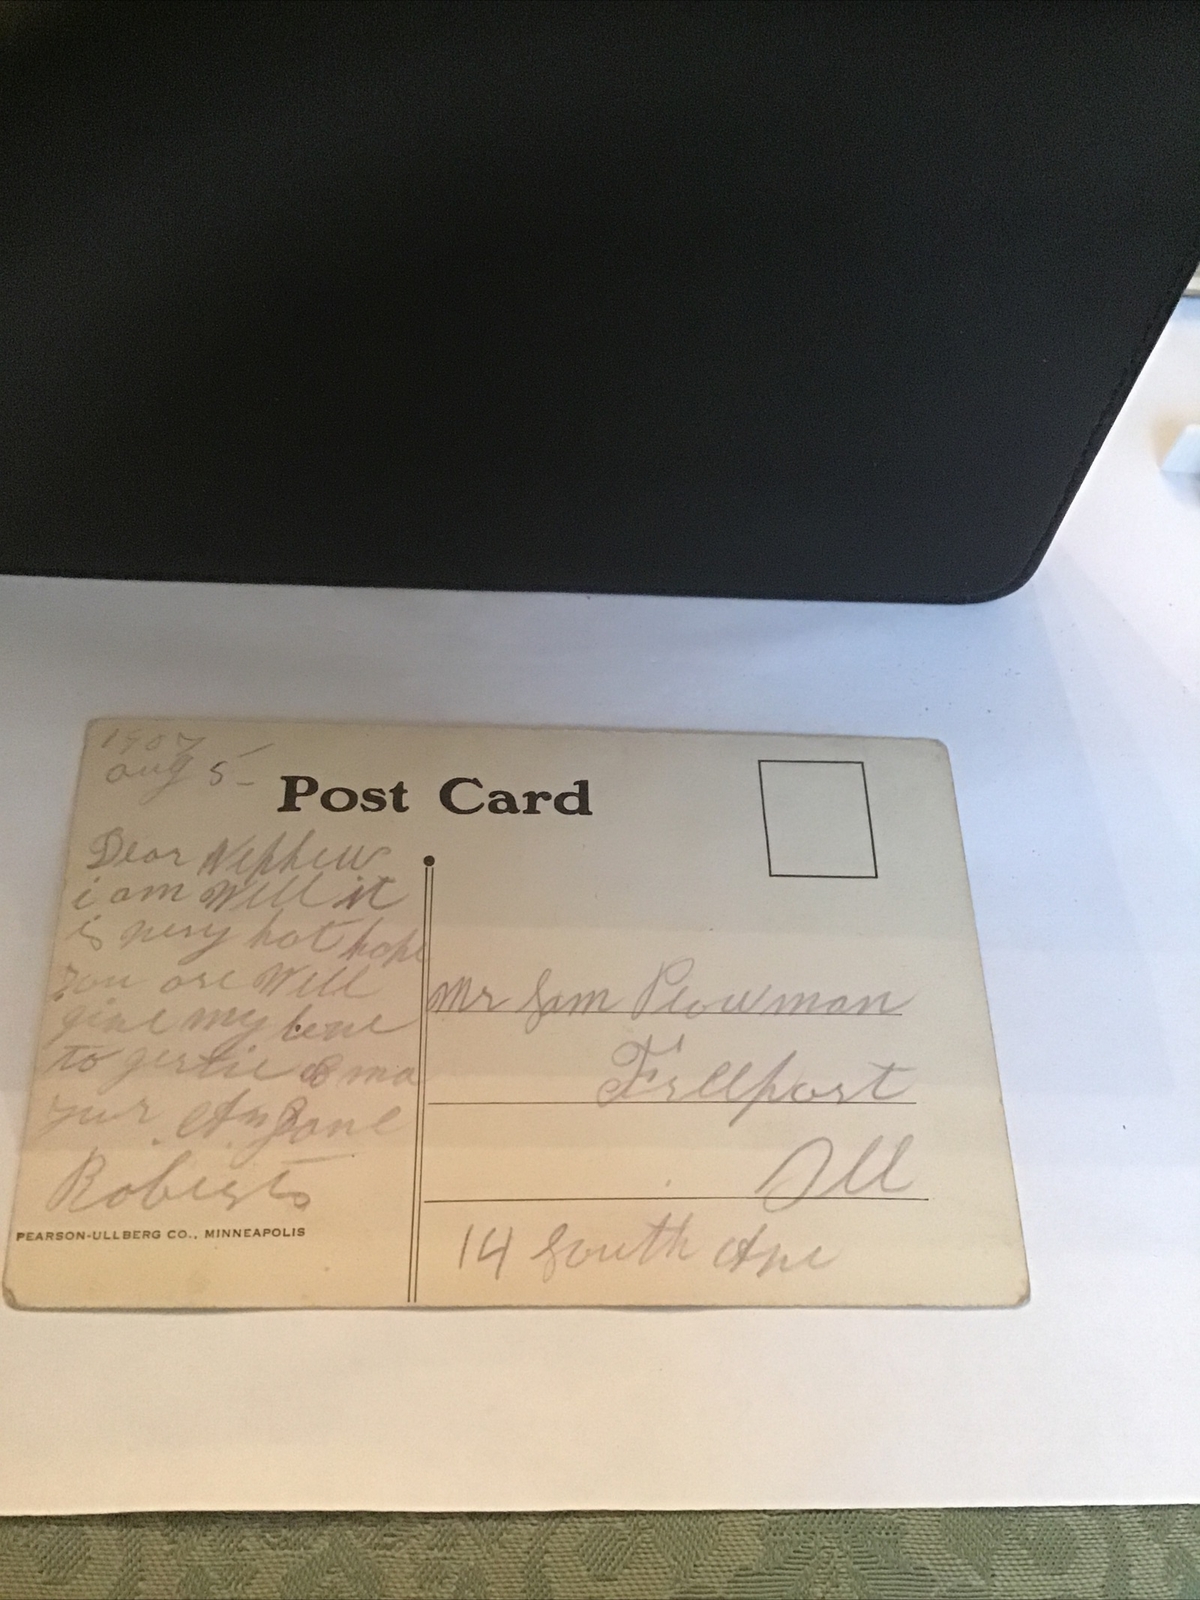 1907
aug 5-
Post Card
Dear Nephew
i am Well it
is very hot hope
you are Well
give my love
to gertie & ma
your An Jane
Roberts
PEARSON-ULLBERG CO., MINNEAPOLIS
Mr Sam Plowman
Freeport
Ill
14 South Ave